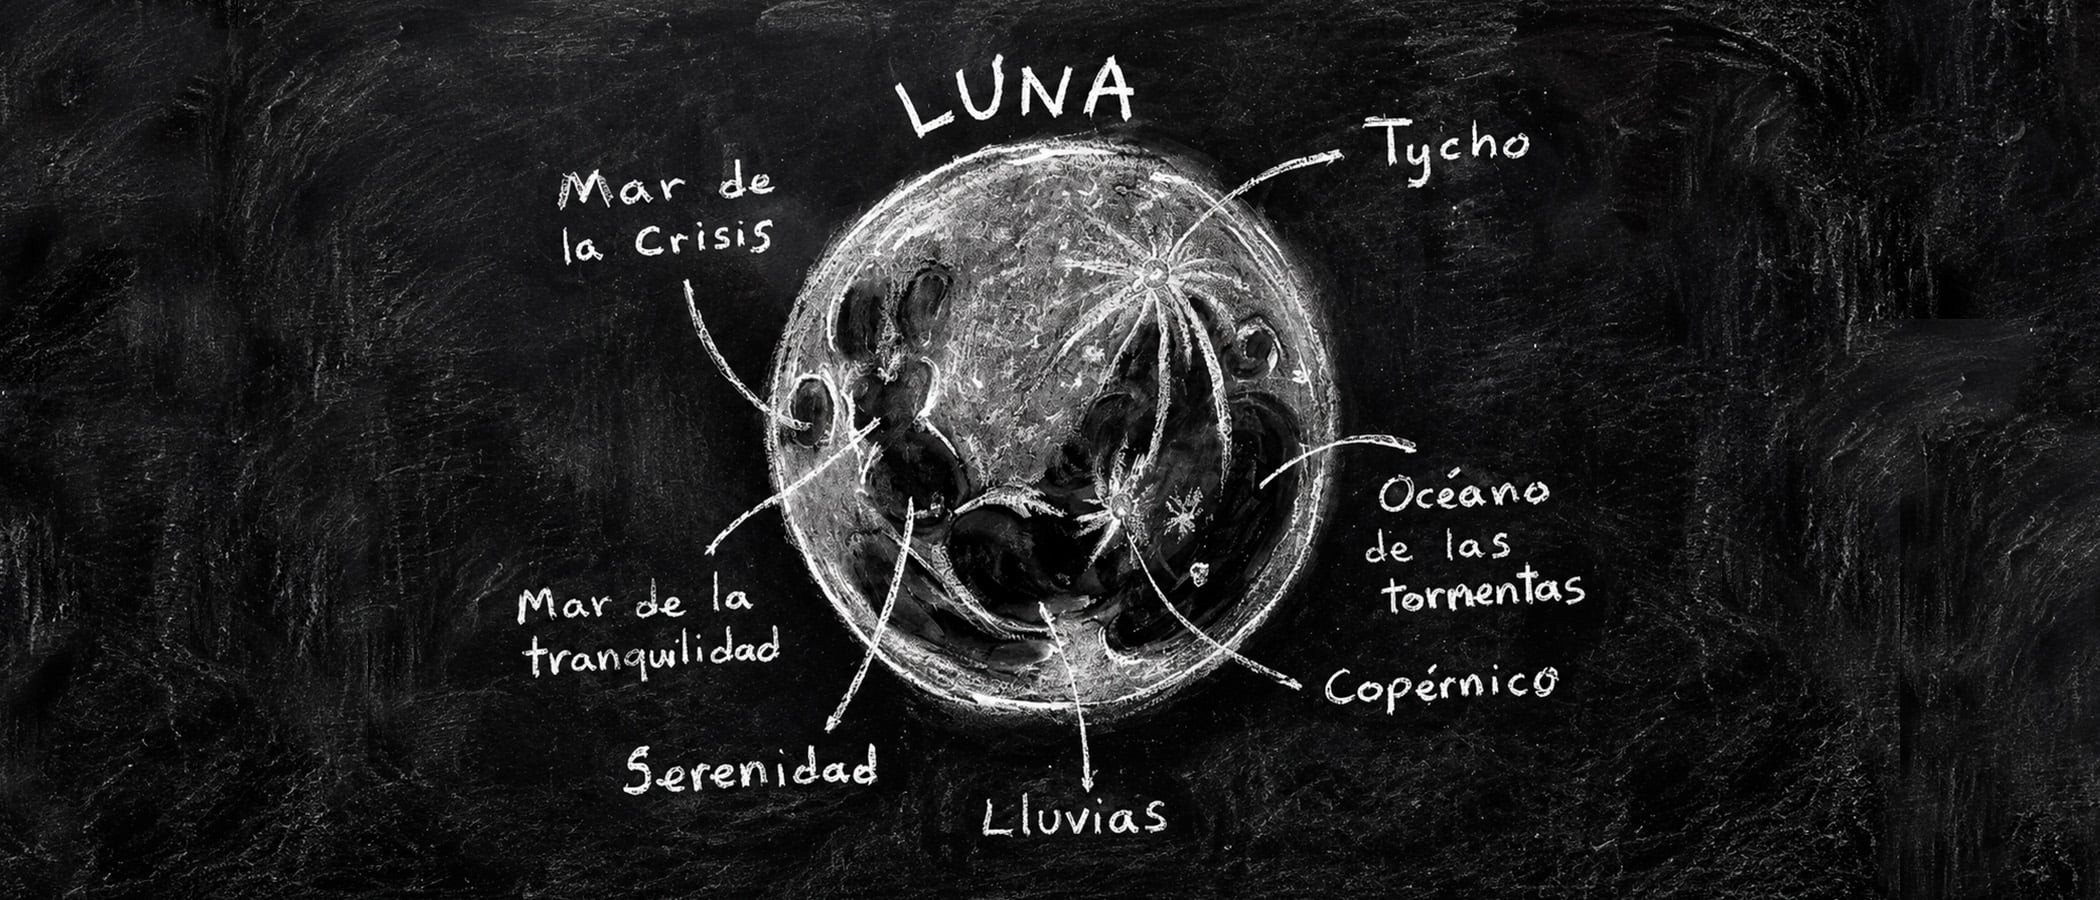 LUNA
Tycho
Mar de
la Crisis
Océano
de las
tormentas
Mar de la
tranquilidad
Copérnico
Serenidad
Lluvias